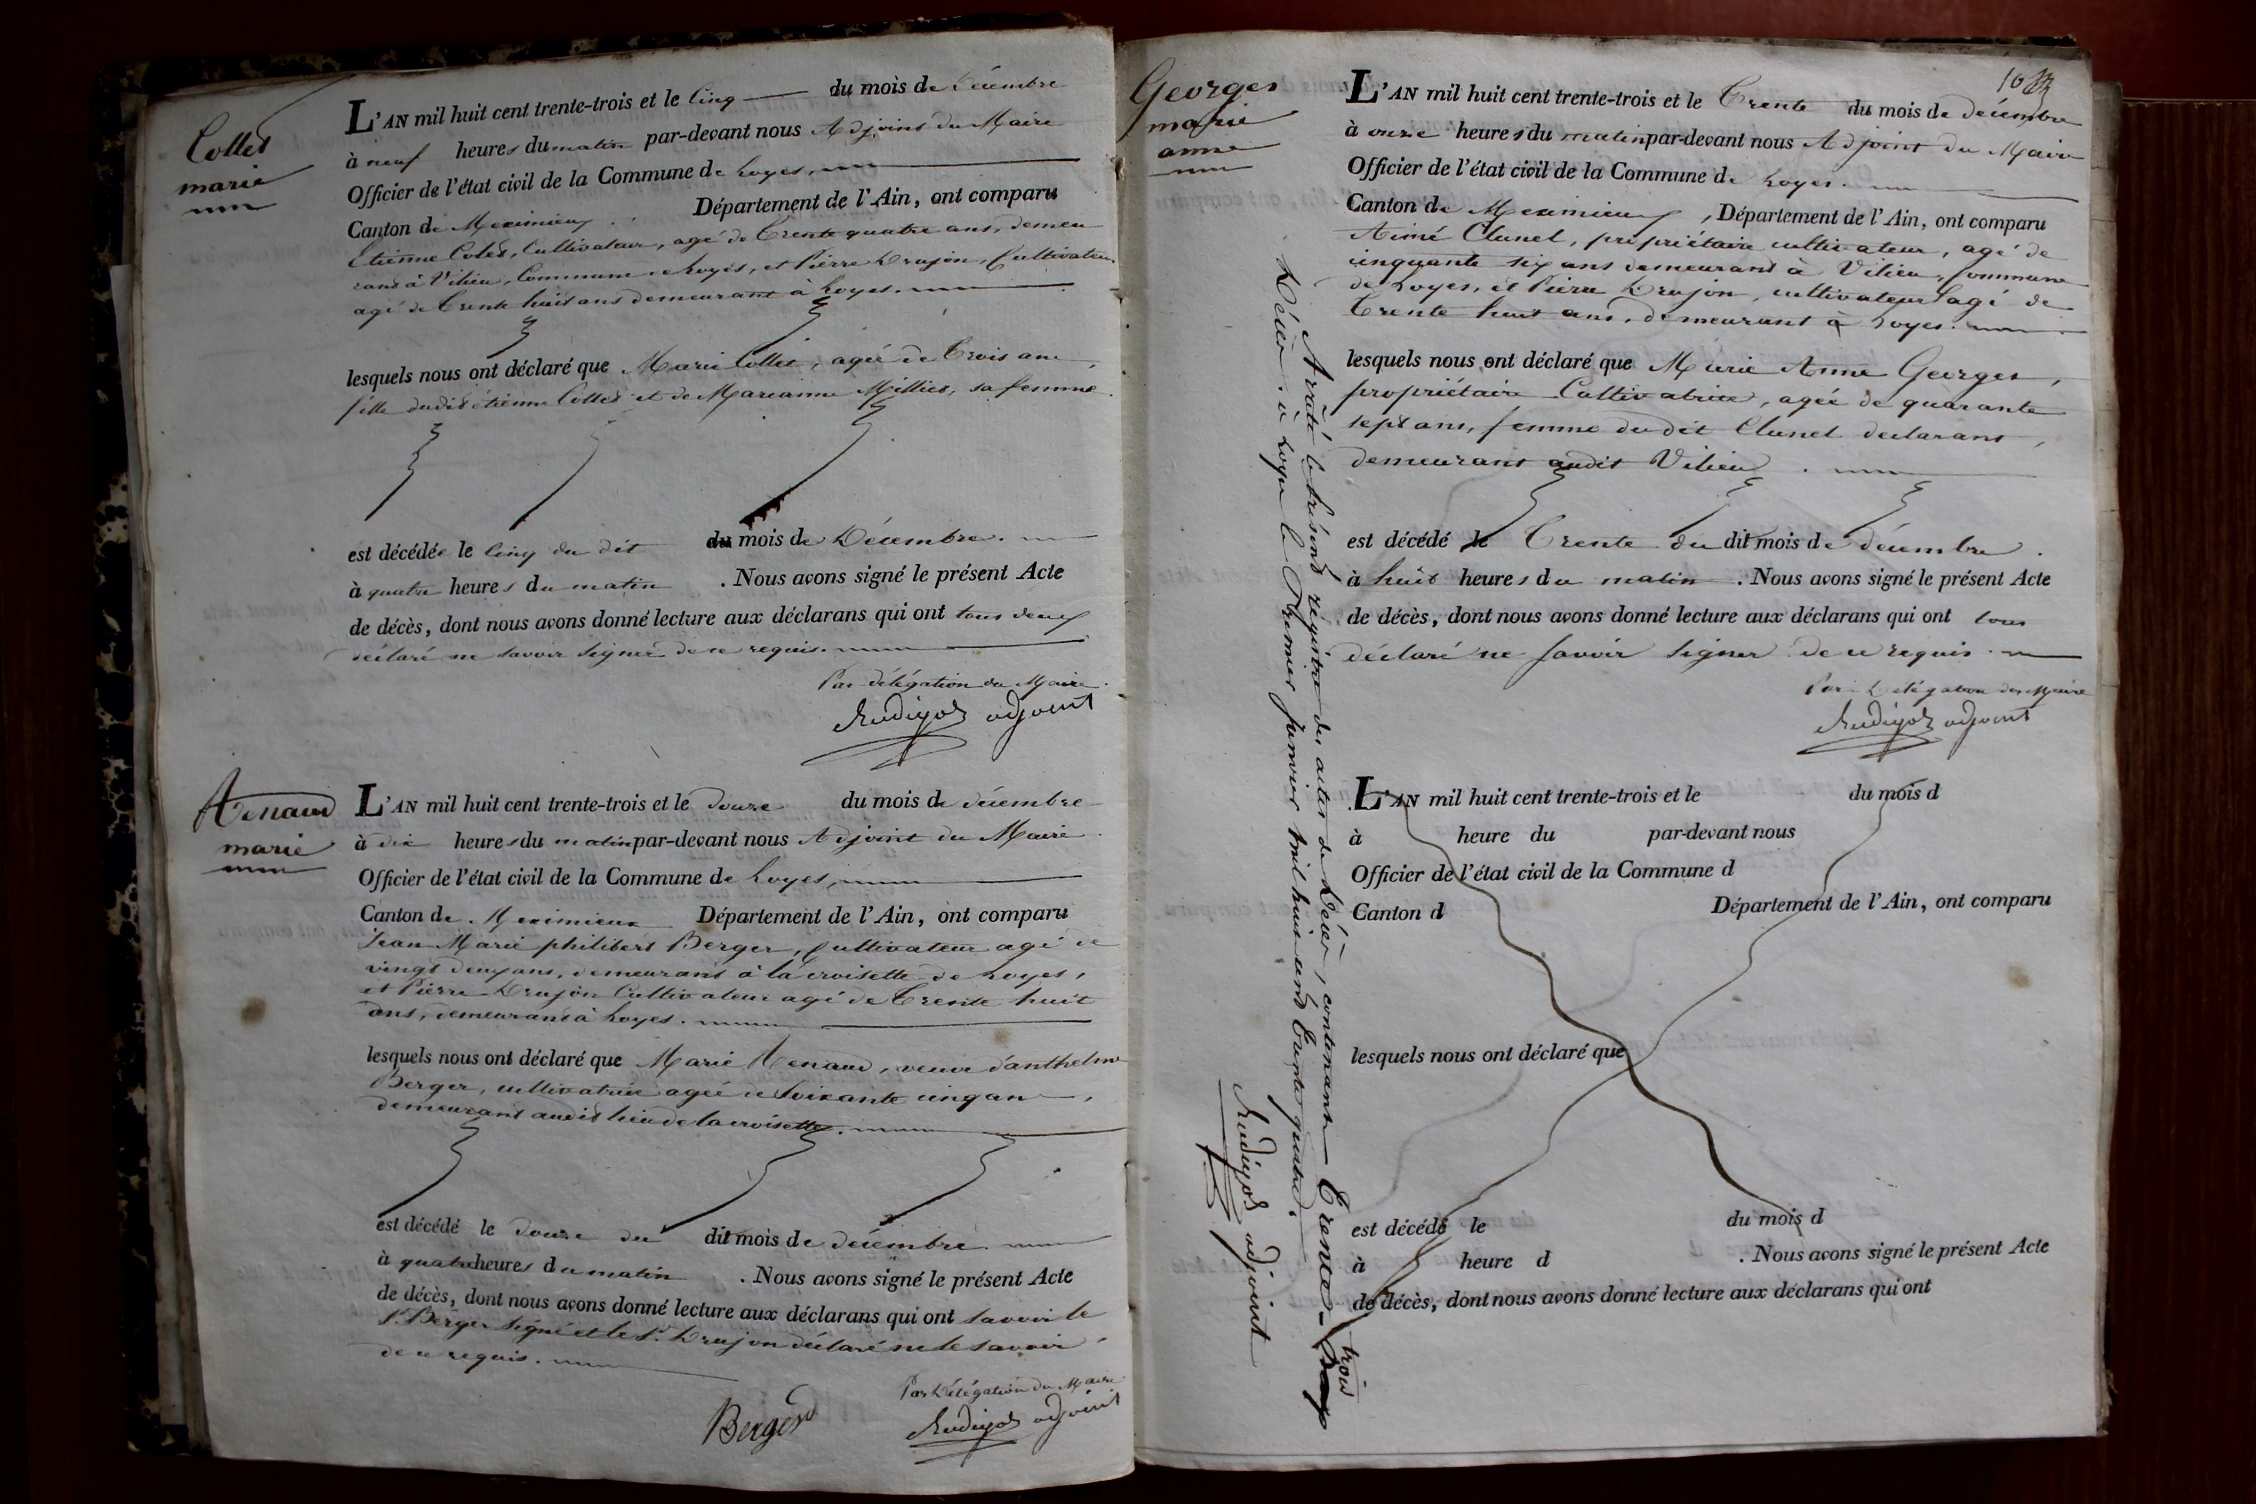 Collet
marie
L'AN mil huit cent trente-trois et le cinq du mois de Décembre
à neuf heures du matin par-devant nous Adjoint du Maire
Officier de l'état civil de la Commune de Loyes,
Canton de Meximieux Département de l'Ain, ont comparu
Etienne Colet, Cultivateur, agé de Trente quatre ans, demeu
rant à Vilieu, Commune de Loyes, et Pierre Drujon, Cultivateur
agé de Trente huit ans demeurant à Loyes.
lesquels nous ont déclaré que Marie Collet, agée de Trois ans,
fille dudit étienne Collet et de Marianne Millet, sa femme.
est décédée le Cinq du dit du mois de Décembre.
à quatre heures du matin . Nous avons signé le présent Acte
de décès, dont nous avons donné lecture aux déclarans qui ont tous deux
déclaré ne savoir signer de ce requis.
Par délégation du Maire.
adjoint
Renaud
marie
L'AN mil huit cent trente-trois et le douze du mois de décembre
à dix heures du matin par-devant nous Adjoint du Maire
Officier de l'état civil de la Commune de Loyes,
Canton de Meximieux Département de l'Ain, ont comparu
Jean Marie philibert Berger, Cultivateur agé de
vingt deux ans, demeurant à la croisette de Loyes,
et Pierre Drujon Cultivateur agé de Trente huit
ans, demeurant à Loyes.
lesquels nous ont déclaré que Marie Renaud, veuve d'anthelme
Berger, cultivatrice agée de Soixante cinq ans,
demeurant audit lieu de la croisette.
est décédé le douze du dit mois de décembre
à quatre heures du matin . Nous avons signé le présent Acte
de décès, dont nous avons donné lecture aux déclarans qui ont savoir le
s. Berger signé et le s. Drujon déclaré ne le savoir
de ce requis.
Par Délégation du Maire
Berger adjoint
10
Georges
marie
anne
L'AN mil huit cent trente-trois et le Trente du mois de décembre
à onze heures du matin par-devant nous Adjoint du Maire
Officier de l'état civil de la Commune de Loyes.
Canton de Meximieux, Département de l'Ain, ont comparu
Aimé Clunet, propriétaire cultivateur, agé de
cinquante six ans demeurant à Vilieu, Commune
de Loyes, et Pierre Drujon, cultivateur agé de
Trente huit ans, demeurant à Loyes.
lesquels nous ont déclaré que Marie Anne Georges,
propriétaire Cultivatrice, agée de quarante
sept ans, femme du dit Clunet déclarant,
demeurant audit Vilieu.
est décédé le Trente du dit mois de décembre.
à huit heures du matin . Nous avons signé le présent Acte
de décès, dont nous avons donné lecture aux déclarans qui ont tous
déclaré ne savoir signer de ce requis.
Par Délégation du Maire
adjoint
L'AN mil huit cent trente-trois et le du mois d
à heure du par-devant nous
Officier de l'état civil de la Commune d
Canton d Département de l'Ain, ont comparu
lesquels nous ont déclaré que
est décédé le du mois d
à heure d . Nous avons signé le présent Acte
de décès, dont nous avons donné lecture aux déclarans qui ont
Arrêté le présent régistre des actes de Décès, contenant Trente trois
Décès. à Loyes le Premier Janvier mil huit cent Trente quatre.
adjoint